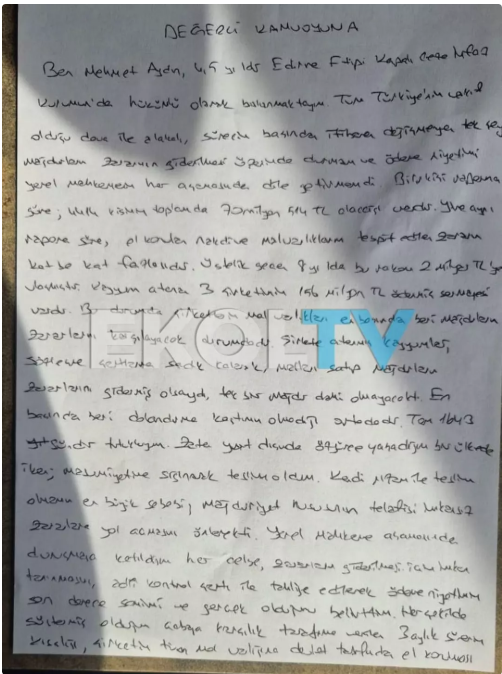 DEĞERLİ KAMUOYUNA
Ben Mehmet Aydın, 4,5 yıldır Edirne F tipi Kapalı Ceza İnfaz
Kurumu'da hükümlü olarak bulunmaktayım. Tüm Türkiye'nin vakıf
olduğu dava ile alakalı, sürecin başından itibaren değişmeyen tek şey
mağdurların zararının giderilmesi üzerinde durmam ve ödeme niyetimi
yerel mahkemenin her aşamasında dile getirmemdi. Bilirkişi raporuna
göre; toplamda 70 milyon TL olacağı vardı. Yine aynı
rapora göre, el konulan nakdi ve malvarlıklarım tespit edilen zararın
kat be kat fazlasıdır. Üstelik geçen 8 yılda bu rakam 2 milyar TL'ye
ulaşmıştır. Kayyum atanan 3 şirketimin milyon TL ödenmiş sermayesi
vardı. Bu durumda şirketlerin mal varlıkları en başından beri mağdurların
zararlarını karşılayacak durumdadır. Şirkete atanan kayyumlar,
sözleşme şartlarına sadık kalarak, malları satıp mağdurların
zararlarını gidermiş olsaydı, tek bir mağdur dahi olmayacaktı. En
başından beri dolandırma kastımın olmadığı ortadadır. Tam 1643
gündür tutukluyum. Zaten yurt dışında özgürce yaşadığım bir ülkede
iken; masumiyetime sığınarak teslim oldum. Kendi rızam ile teslim
olmamın en büyük sebebi; mağduriyet hususunun telafisi imkansız
zararlara yol açmasını önlemekti. Yerel Mahkeme aşamasında
duruşmaya katıldığım her celse, zararların giderilmesi için imkan
tanınmasını, adli kontrol şartı ile tahliye edilerek ödeme niyetimin
son derece samimi ve gerçek olduğunu belirttim. Her şekilde
göstermiş olduğum çabaya karşılık tarafıma verilen Başlık
kısaltıp, şirketin tüm mal varlığına devlet tarafından el konması
EKOL TV